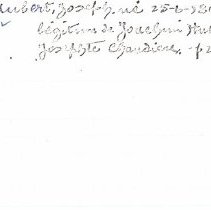 Aubert, Joseph, né 25-6-18
légitim de Joachim
Josephte Chaudière.